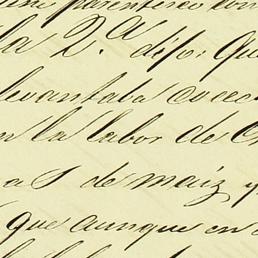 parentesco con
la 2.ª dijo: Que
levantaba cosec
en la labor de C
as de maiz y
que aunque en